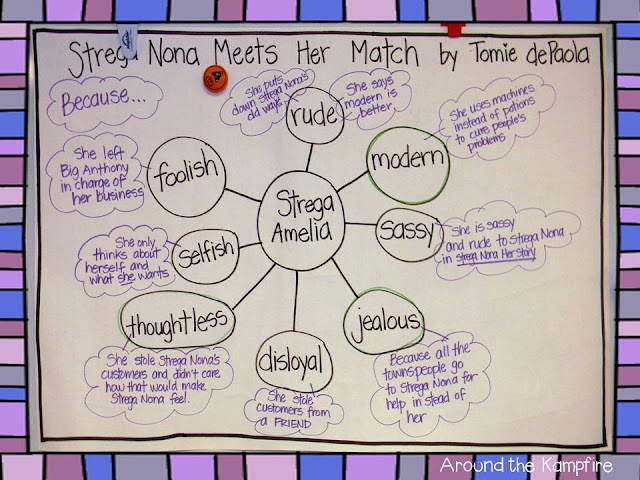 Strega Nona Meets Her Match by Tomie dePaola
Because...
She puts
down Strega Nona's
old ways.
She says
modern is
better.
rude
She uses machines
instead of potions
to cure people's
problems
modern
She left
Big Anthony
in charge of
her business
foolish
Strega
Amelia
sassy
She is sassy
and rude to Strega Nona
in Strega Nona Her Story
She only
thinks about
herself and
what she wants
selfish
thoughtless
She stole Strega Nona's
customers and didn't care
how that would make
Strega Nona feel.
disloyal
She stole
customers from
a FRIEND
jealous
Because all the
townspeople go
to Strega Nona for
help in stead of
her
Around the Kampfire